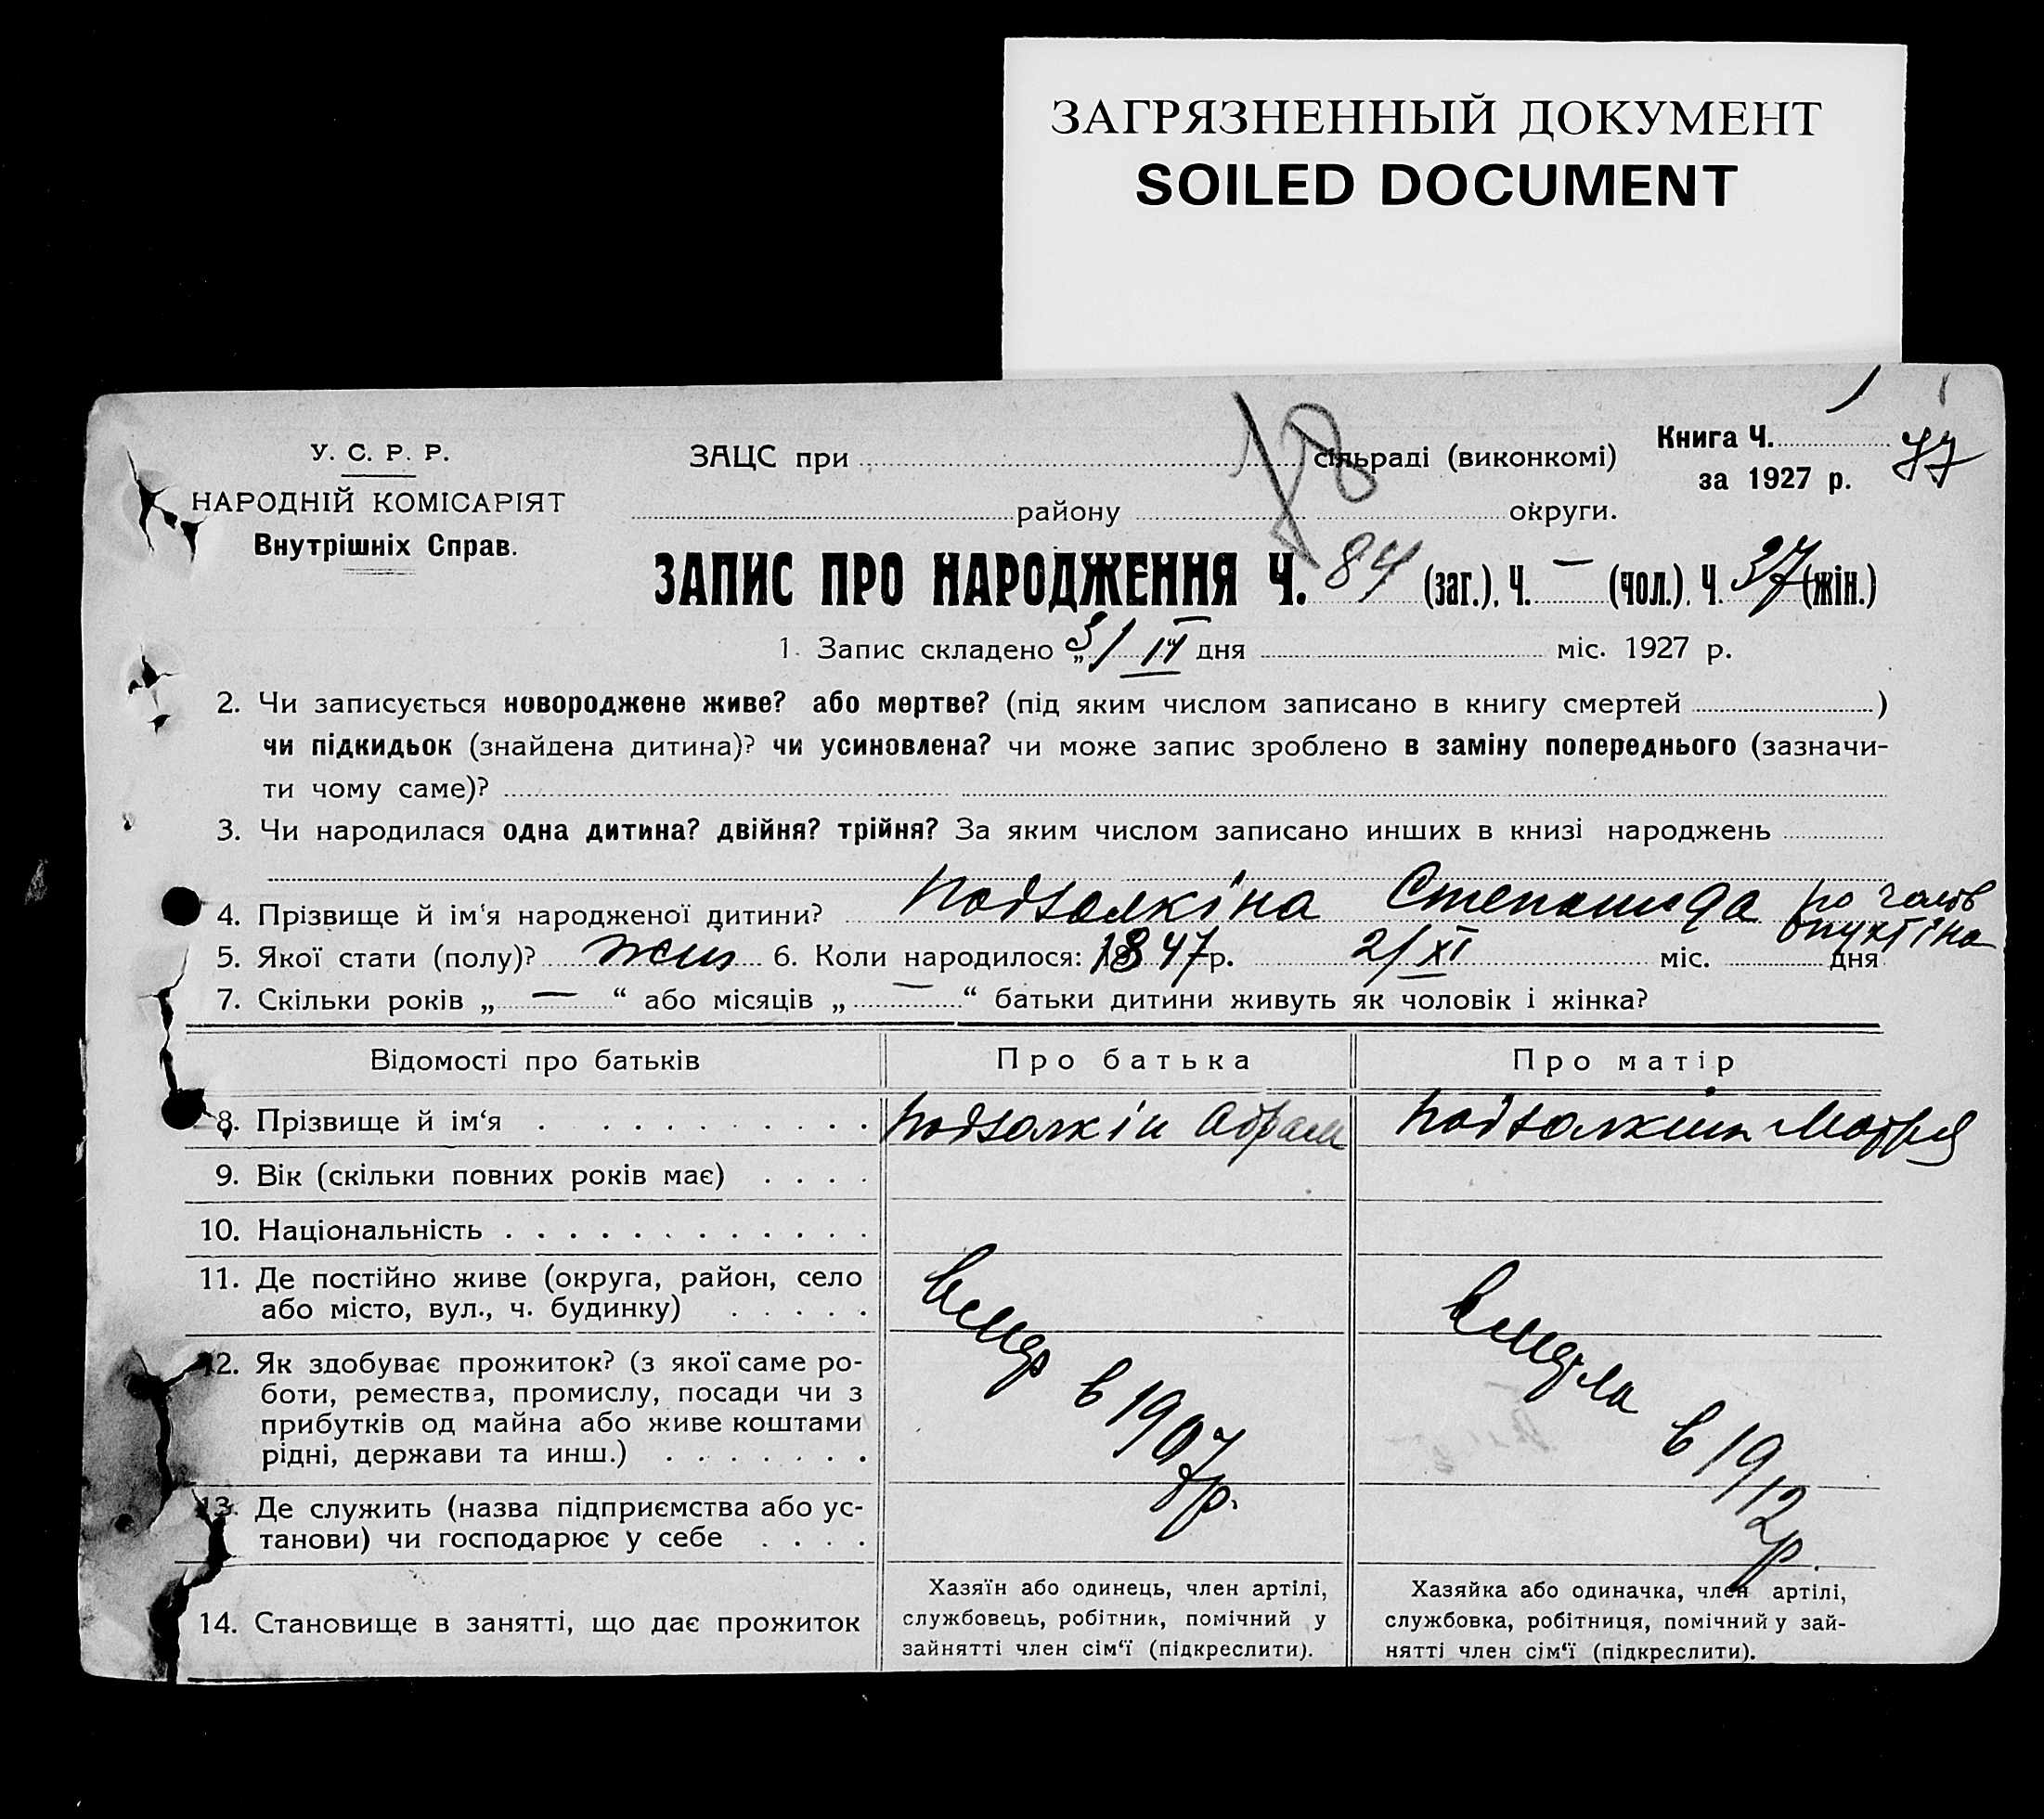 ЗАГРЯЗНЕННЫЙ ДОКУМЕНТ
SOILED DOCUMENT
У. С. Р. Р.
НАРОДНІЙ КОМІСАРІЯТ
Внутрішніх Справ.
ЗАЦС при сільраді (виконкомі)
району округи.
Книга Ч. 77
за 1927 р.
ЗАПИС ПРО НАРОДЖЕННЯ Ч. 84 (заг.), Ч. — (чол.), Ч. 37 (жін.)
1. Запис складено „3/IV дня міс. 1927 р.
2. Чи записується новороджене живе? або мертве? (під яким числом записано в книгу смертей )
чи підкидьок (знайдена дитина)? чи усиновлена? чи може запис зроблено в заміну попереднього (зазначи-
ти чому саме)?
3. Чи народилася одна дитина? двійня? трійня? За яким числом записано инших в книзі народжень
4. Прізвище й ім'я народженої дитини? Подзолкіна Степанида по
5. Якої стати (полу)? жін 6. Коли народилося: 1847 р. 2/XI міс. дня
7. Скільки років „ — “ або місяців „ — “ батьки дитини живуть як чоловік і жінка?
Відомості про батьків
Про батька
Про матір
8. Прізвище й ім‘я
Подзолкін Абрам
Подзолкина
9. Вік (скільки повних років має)
10. Національність
11. Де постійно живе (округа, район, село
або місто, вул., ч. будинку)
12. Як здобуває прожиток? (з якої саме ро-
боти, ремества, промислу, посади чи з
прибутків од майна або живе коштами
рідні, держави та инш.)
13. Де служить (назва підприємства або ус-
танови) чи господарює у себе
вмер в 1907 р.
вмерла в 1912 р.
14. Становище в занятті, що дає прожиток
Хазяїн або одинець, член артілі,
службовець, робітник, помічний у
зайнятті член сім‘ї (підкреслити).
Хазяйка або одиначка, член артілі,
службовка, робітниця, помічний у зай-
нятті член сім‘ї (підкреслити).